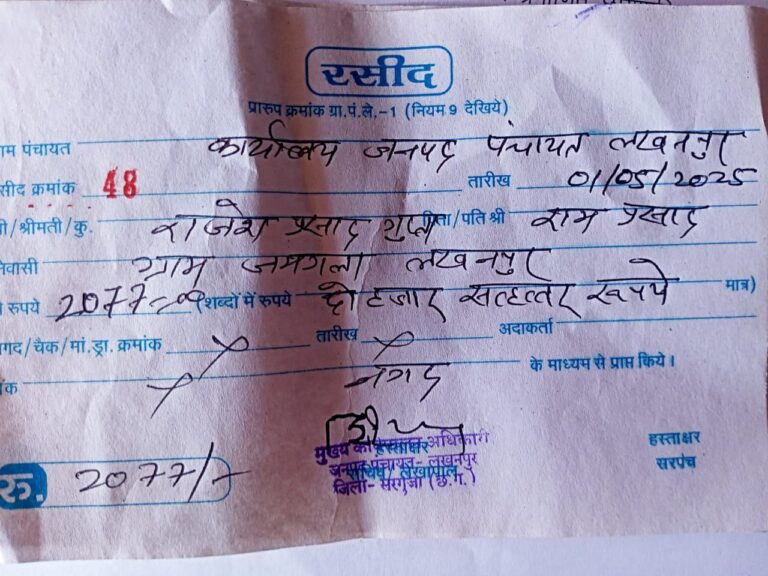 रसीद
प्रारुप क्रमांक ग्रा.पं.ले.-1 (नियम 9 देखिये)
ाम पंचायत कार्यालय जनपद पंचायत लखनपुर
सीद क्रमांक 48 तारीख 01/05/2025
ी/श्रीमती/कु. राजेश प्रसाद गुप्ता पिता/पति श्री राम प्रसाद
निवासी ग्राम जमगला लखनपुर
रुपये 2077=00 (शब्दों में रुपये दो हजार सतहत्तर रूपये मात्र)
गद/चैक/मां.ड्रा. क्रमांक तारीख अदाकर्ता
ंक नगद के माध्यम से प्राप्त किये।
हस्ताक्षर
सचिव/लेखापाल
मुख्य कार्यपालन अधिकारी
जनपद पंचायत- लखनपुर
जिला- सरगुजा (छ.ग.)
हस्ताक्षर
सरपंच
रु. 2077/-